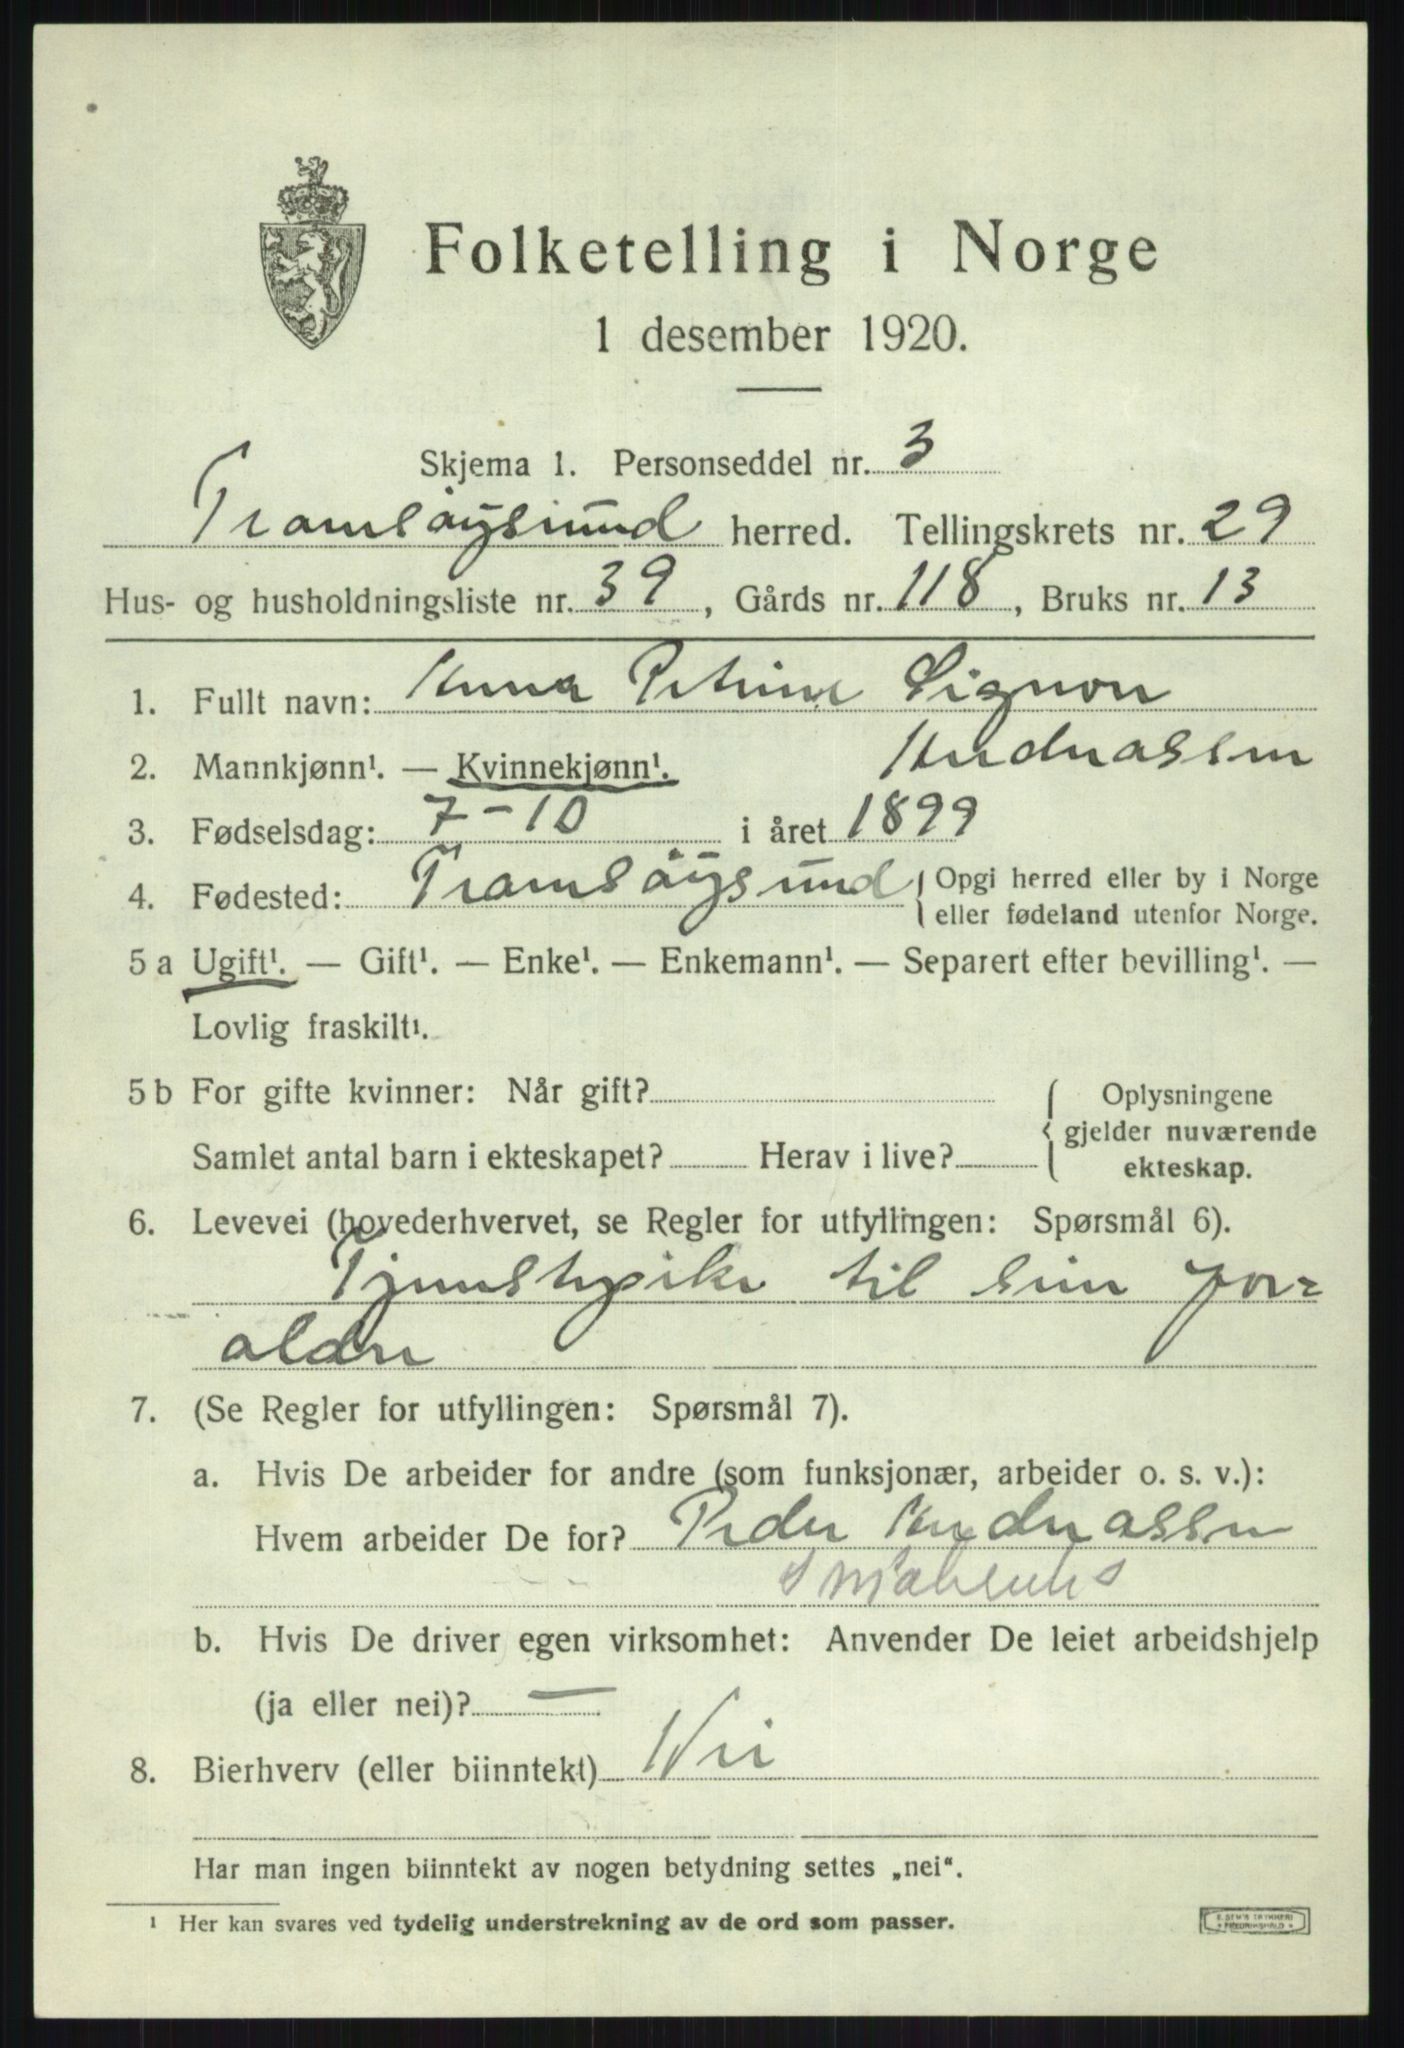 Folketelling i Norge
1 desember 1920.
Skjema 1. Personseddel nr. 3
Tromsöysund herred. Tellingskrets nr. 29
Hus- og husholdningsliste nr. 39, Gårds nr. 118, Bruks nr. 13
1. Fullt navn: Anna Petrine Signor
Andreassen
2. Mannkjønn¹. — Kvinnekjønn¹.
3. Fødselsdag: 7-10 i året 1899
4. Fødested: Tromsöysund { Opgi herred eller by i Norge
eller fødeland utenfor Norge.
5 a Ugift¹. — Gift¹. — Enke¹. — Enkemann¹. — Separert efter bevilling¹. —
Lovlig fraskilt¹.
5 b For gifte kvinner: Når gift?
Samlet antal barn i ekteskapet? Herav i live?
Oplysningene
gjelder nuværende
ekteskap.
6. Levevei (hovederhvervet, se Regler for utfyllingen: Spørsmål 6).
Tjenstepike til sine for=
aldre
7. (Se Regler for utfyllingen: Spørsmål 7).
a. Hvis De arbeider for andre (som funksjonær, arbeider o. s. v.):
Hvem arbeider De for? Peder Andreassen
b. Hvis De driver egen virksomhet: Anvender De leiet arbeidshjelp
(ja eller nei)? —
8. Bierhverv (eller biinntekt) Nei
Har man ingen biinntekt av nogen betydning settes „nei“.
¹ Her kan svares ved tydelig understrekning av de ord som passer.